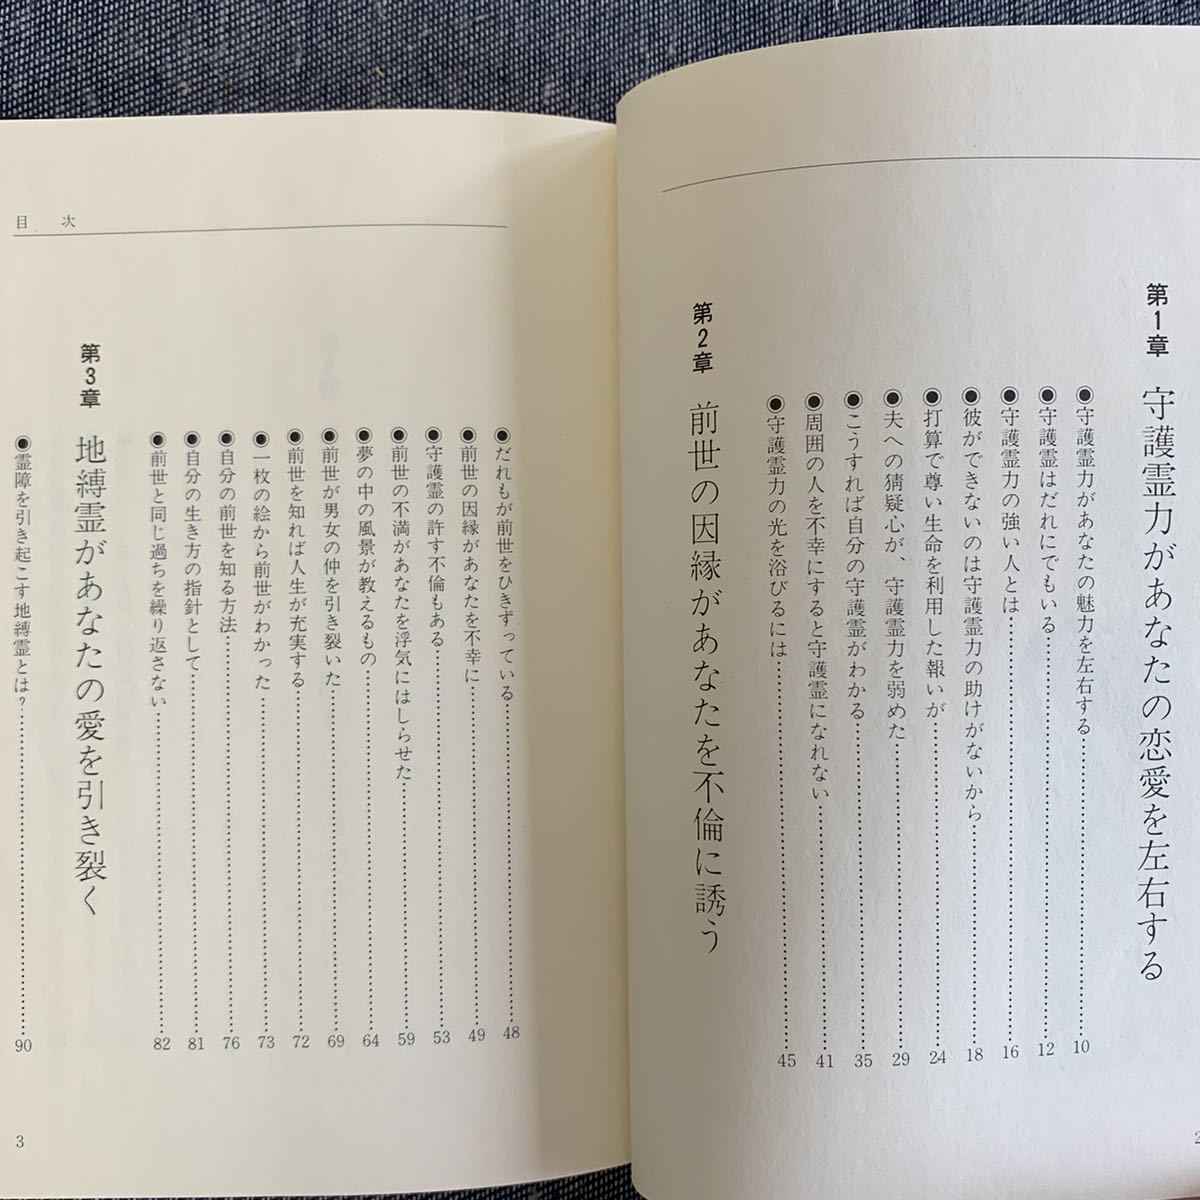 第1章 守護霊力があなたの恋愛を左右する
◉守護霊力があなたの魅力を左右する……………10
◉守護霊はだれにでもいる……………12
◉守護霊力の強い人とは……………16
◉彼ができないのは守護霊力の助けがないから……………18
◉打算で尊い生命を利用した報いが……………24
◉夫への猜疑心が、守護霊力を弱めた……………29
◉こうすれば自分の守護霊がわかる……………35
◉周囲の人を不幸にすると守護霊になれない……………41
◉守護霊力の光を浴びるには……………45
第2章 前世の因縁があなたを不倫に誘う
2
目次
◉だれもが前世をひきずっている……………48
◉前世の因縁があなたを不幸に……………49
◉守護霊の許す不倫もある……………53
◉前世の不満があなたを浮気にはしらせた……………59
◉夢の中の風景が教えるもの……………64
◉前世が男女の仲を引き裂いた……………69
◉前世を知れば人生が充実する……………72
◉一枚の絵から前世がわかった……………73
◉自分の前世を知る方法……………76
◉自分の生き方の指針として……………81
◉前世と同じ過ちを繰り返さない……………82
第3章 地縛霊があなたの愛を引き裂く
◉霊障を引き起こす地縛霊とは?……………90
3